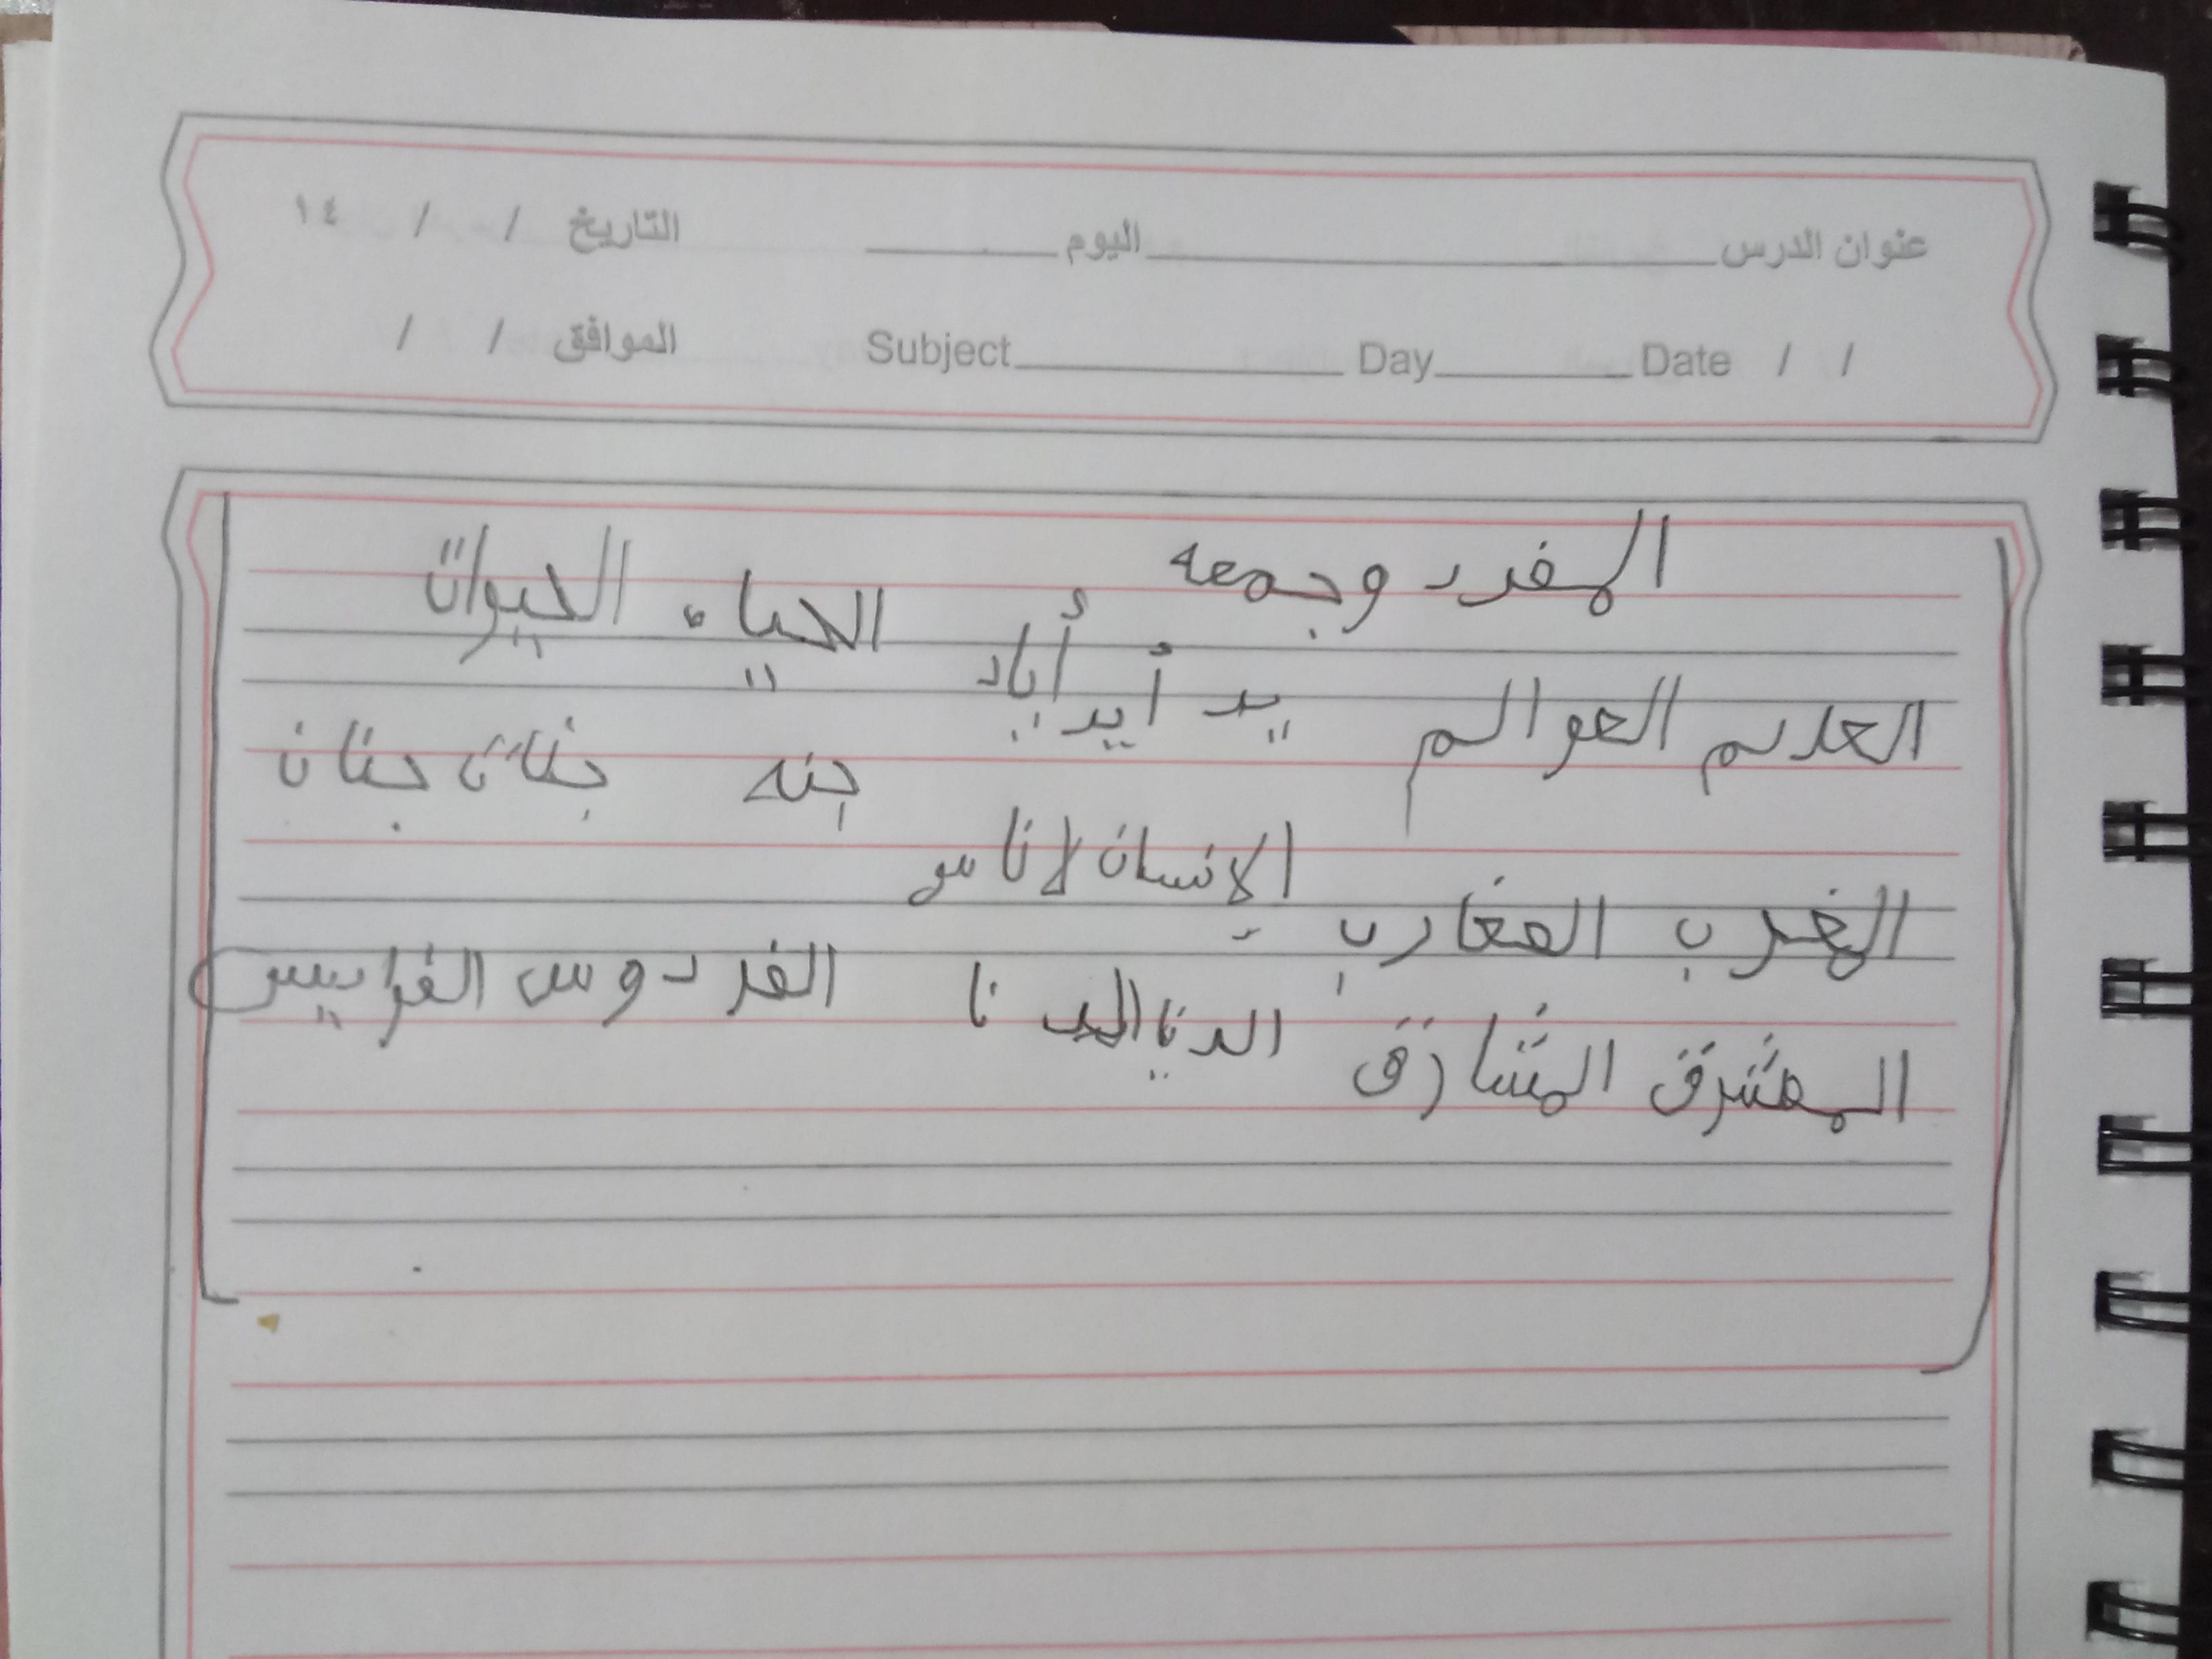 عنوان الدرس اليوم التاريخ / / ١٤
Subject Day Date / / الموافق / /
المفرد وجمعه
الحياه الحيوات
العالم العوالم يد أيد أياد
جنه جنات جنان
الإنسان الاناس
المغرب المغارب
الفردوس الفراديس
المشرق المشارق الدنيا الدنا